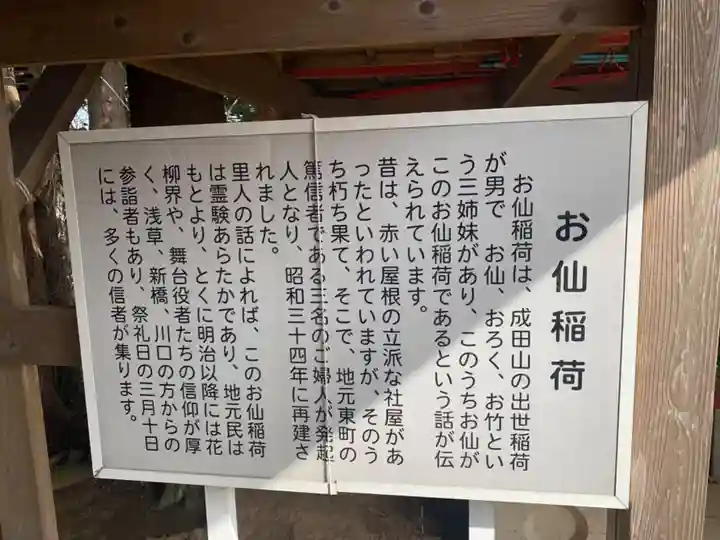 お仙稲荷
お仙稲荷は、成田山の出世稲荷
が男で　お仙、おろく、お竹とい
う三姉妹があり、このうちお仙が
このお仙稲荷であるという話が伝
えられています。
昔は、赤い屋根の立派な社屋があ
ったといわれていますが、そのう
ち朽ち果て、そこで、地元東町の
篤信者である三名のご婦人が発起
人となり、昭和三十四年に再建さ
れました。
里人の話によれば、このお仙稲荷
は霊験あらたかであり、地元民は
もとより、とくに明治以降には花
柳界や、舞台役者たちの信仰が厚
く、浅草、新橋、川口の方からの
参詣者もあり、祭礼日の三月十日
には、多くの信者が集ります。